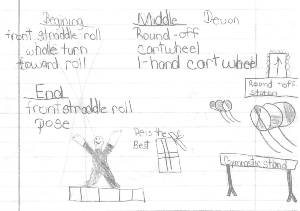 Begining
front straddle roll
whole turn
foward roll
Middle
Round-off
cartwheel
1-hand cartwheel
Devon
End
front straddle roll
pose
Round-off
station
is the
Best
Gymnastic stand